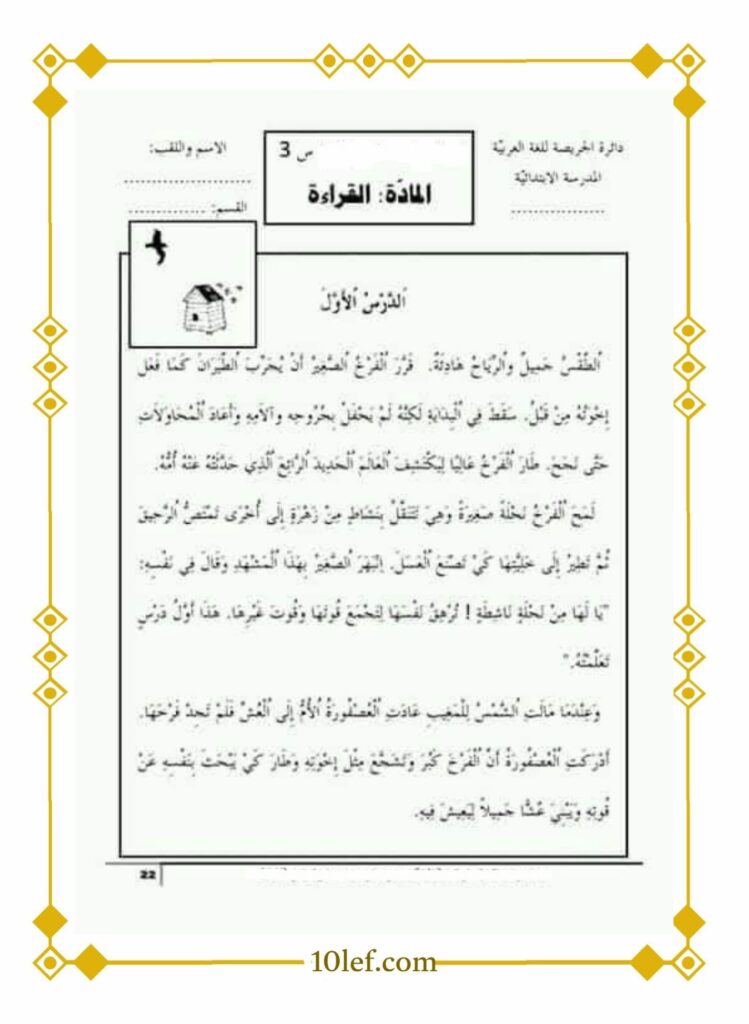 دائرة الحريصة للغة العربيّة
المدرسة الابتدائيّة
......................
س 3
المادّة: القراءة
الاسم واللقب:
......................
القسم: ..................
اَلدَّرْسُ اَلْأَوَّلُ
اَلطَّقْسُ جَمِيلٌ والرِّيَاحُ هَادِئَةٌ. قَرَّرَ اَلْفَرْخُ اَلصَّغِيرُ أَنْ يُجَرِّبَ اَلطَّيَرَانَ كَمَا فَعَلَ
إِخْوَتُهُ مِنْ قَبْلُ. سَقَطَ فِي اَلْبِدَايَةِ لَكِنَّهُ لَمْ يَحْفَلْ بِجُرُوحِهِ وآلاَمِهِ وَأَعَادَ اَلْمُحَاوَلاَتِ
حَتَّى نَجَحَ. طَارَ اَلْفَرْخُ عَالِيًا لِيَكْتَشِفَ اَلْعَالَمَ اَلْجَدِيدَ اَلرَّائِعَ اَلَّذِي حَدَّثَتْهُ عَنْهُ أُمُّهُ.
لَمَحَ اَلْفَرْخُ نَحْلَةً صَغِيرَةً وَهِيَ تَتَنَقَّلُ بِنَشَاطٍ مِنْ زَهْرَةٍ إِلَى أُخْرَى تَمْتَصُّ اَلرَّحِيقَ
ثُمَّ تَطِيرُ إِلَى خَلِيَّتِهَا كَيْ تَصْنَعَ اَلْعَسَلَ. اِنْبَهَرَ اَلصَّغِيرُ بِهَذَا اَلْمَشْهَدِ وَقَالَ فِي نَفْسِهِ:
"يَا لَهَا مِنْ نَحْلَةٍ نَاشِطَةٍ ! تُرْهِقُ نَفْسَهَا لِتَجْمَعَ قُوتَهَا وَقُوتَ غَيْرِهَا. هَذَا أَوَّلُ دَرْسٍ
تَعَلَّمْتُهُ."
وَعِنْدَمَا مَالَتِ اَلشَّمْسُ لِلْمَغِيبِ عَادَتِ اَلْعُصْفُورَةُ اَلأُمُّ إِلَى اَلْعُشِّ فَلَمْ تَجِدْ فَرْخَهَا.
أَدْرَكَتِ اَلْعُصْفُورَةُ أَنَّ اَلْفَرْخَ كَبُرَ وَتَشَجَّعَ مِثْلَ إِخْوَتِهِ وَطَارَ كَيْ يَبْحَثَ بِنَفْسِهِ عَنْ
قُوتِهِ وَيَبْنِيَ عُشًّا جَمِيلاً لِيَعِيشَ فِيهِ.
22
10lef.com